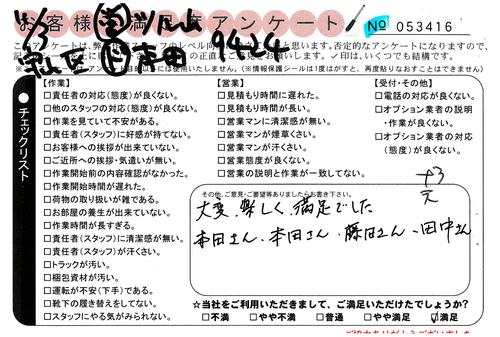 お客様満足度アンケート
No 053416
本田 9424
チェックリスト
【作業】
□責任者の対応(態度)が良くない。
□他のスタッフの対応(態度)が良くない。
□作業を見ていて不安がある。
□責任者(スタッフ)に好感が持てない。
□お客様への挨拶が出来ていない。
□ご近所への挨拶・気遣いが無い。
□作業開始前の内容確認がなかった。
□作業開始時間が遅れた。
□荷物の取り扱いが雑である。
□お部屋の養生が出来ていない。
□作業時間が長すぎる。
□責任者(スタッフ)に清潔感が無い。
□責任者(スタッフ)が汗くさい。
□トラックが汚い。
□梱包資材が汚い。
□運転が不安(下手)である。
□靴下の履き替えをしてない。
□スタッフにやる気がみられない。
【営業】
□見積もり時間に遅れた。
□見積もり時間が長い。
□営業マンに清潔感が無い。
□営業マンが煙草くさい。
□営業マンが汗くさい。
□営業態度が良くない。
□営業の説明と作業が一致してない。
【受付・その他】
□電話の対応が良くない。
□オプション業者の説明
・作業が良くない。
□オプション業者の対応
(態度)が良くない。
その他、ご意見・ご要望等ありましたらお書き下さい。
大変、楽しく、満足でした
本田さん、本田さん、藤田さん、田中さん
☆当社をご利用いただきまして、ご満足いただけたでしょうか?
□不満 □やや不満 □普通 □やや満足 ☑満足